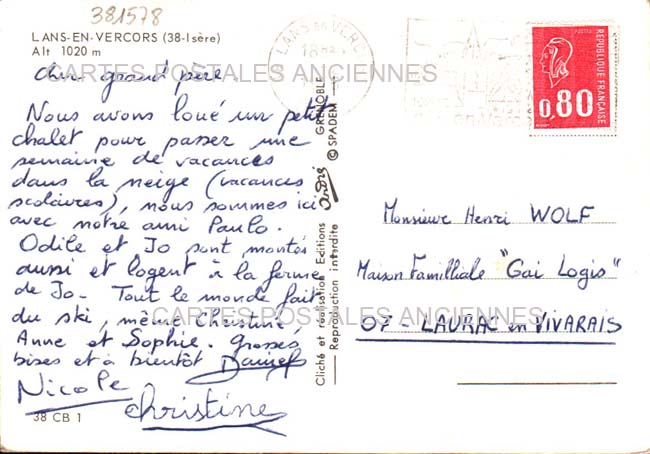 381578
LANS-EN-VERCORS (38-Isère)
Alt 1020 m
Cher grand père
Nous avons loué un petit
chalet pour passer une
semaine de vacances
dans la neige (vacances
scolaires), nous sommes ici
avec notre ami Paulo.
Odile et Jo sont montés
aussi et logent à la ferme
de Jo. Tout le monde fait
du ski, même Christine
Anne et Sophie. Grosses
bises et à bientôt Daniel
Nicole
Christine
38 CB 1
CARTES POSTALES ANCIENNES
CARTES POSTALES ANCIENNES
Cliché et réalisation Editions André GRENOBLE
Reproduction interdite © SPADEM
LANS EN VERC
18
0,80
POSTES
REPUBLIQUE FRANÇAISE
Monsieur Henri WOLF
Maison Familliale "Gai Logis"
07 - LAURAC en VIVARAIS